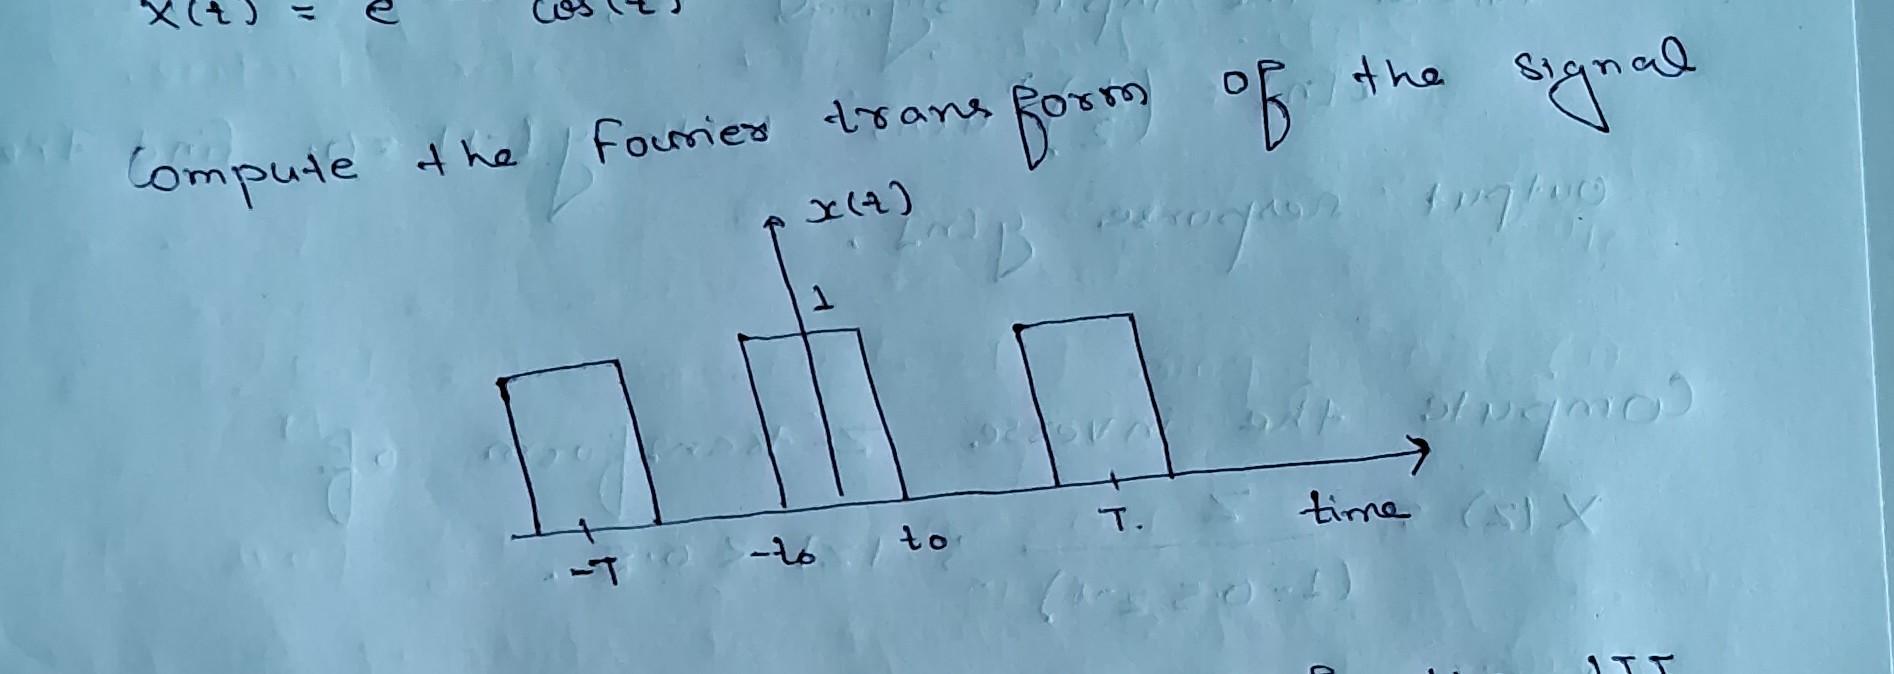 x(t) = e cos(t)
Compute the Fourier transform of the signal
x(t)
1
-T
-to
to
T.
time